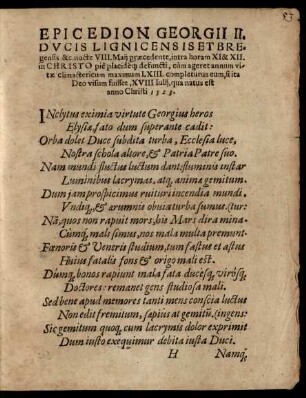 53
EPICEDION GEORGII II.
DVCIS LIGNICENSIS ET BRE-
gensis &c. nocte VIII. Maij præcedente, intra horam XI & XII.
in CHRISTO piè placideq́; defuncti, cùm ageret annum vi-
tæ climactericum maximum LXIII. completurus eum, si ita
Deo visum fuisset, XVIII Iulij, qua natus est
anno Christi 1523.
INclytus eximia virtute Georgius heros
Elysia, fato dum superante cadit:
Orba dolet Duce subdita turba, Ecclesia luce,
Nostra schola altore, & Patria Patre suo.
Nam mundi fluctus luctum dant: fluminis instar
Luminibus lacrymas, atq; anima gemitum.
Dum jam prospicimus ruituri incendia mundi,
Vndiq;, & ærumnis obvia turba sumus. (tur:
Nã, quos non rapuit mors, his Mars dira mina-
Cùmq́; mali simus, nos mala multa premunt.
Fœnoris & Ventris studium, tum fastus et astus
Huius fatalis fons & origo mali est.
Dumq́; bonos rapiunt mala fata ducesq́;, virosq́;
Doctores: remanet gens studiosa mali.
Sed bene apud memores tanti mens conscia luctus
Non edit fremitum, sæpius at gemitũ. (ingens:
Sic gemitum quoq; cum lacrymis dolor exprimit
Dum iusto exequimur debita iusta Duci.
H Namq́;